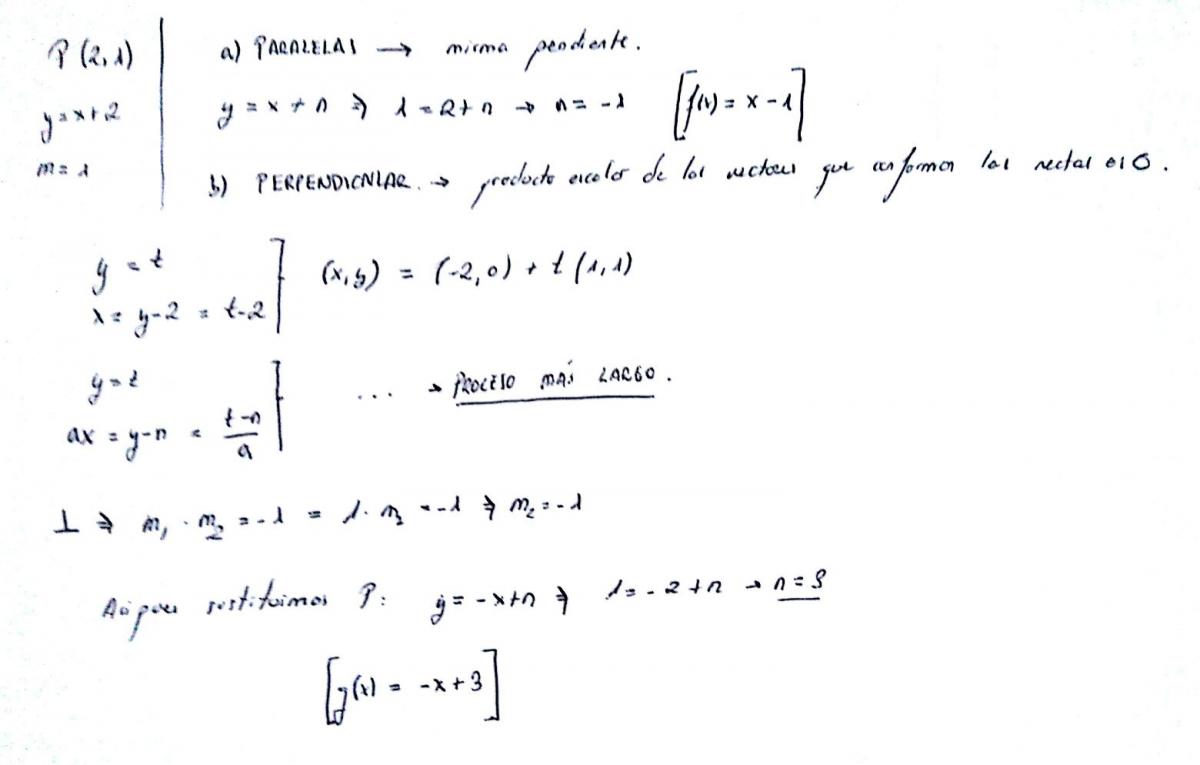 P (2,1)
y = x+2
m = 1
a) PARALELAS → misma pendiente.
y = x + n ⇒ 1 = 2 + n → n = -1 [f(x) = x - 1]
b) PERPENDICULAR. → producto escalar de los vectores que conforman las rectas es 0.
y = t
x = y-2 = t-2
(x,y) = (-2,0) + t (1,1)
y = t
ax = y-n = \frac{t-n}{a}
... → PROCESO MÁS LARGO.
⊥ ⇒ m₁ · m₂ = -1 = 1 · m₂ = -1 ⇒ m₂ = -1
Así pues sustituimos P: y = -x+n ⇒ 1 = -2+n → n = 3
[g(x) = -x+3]